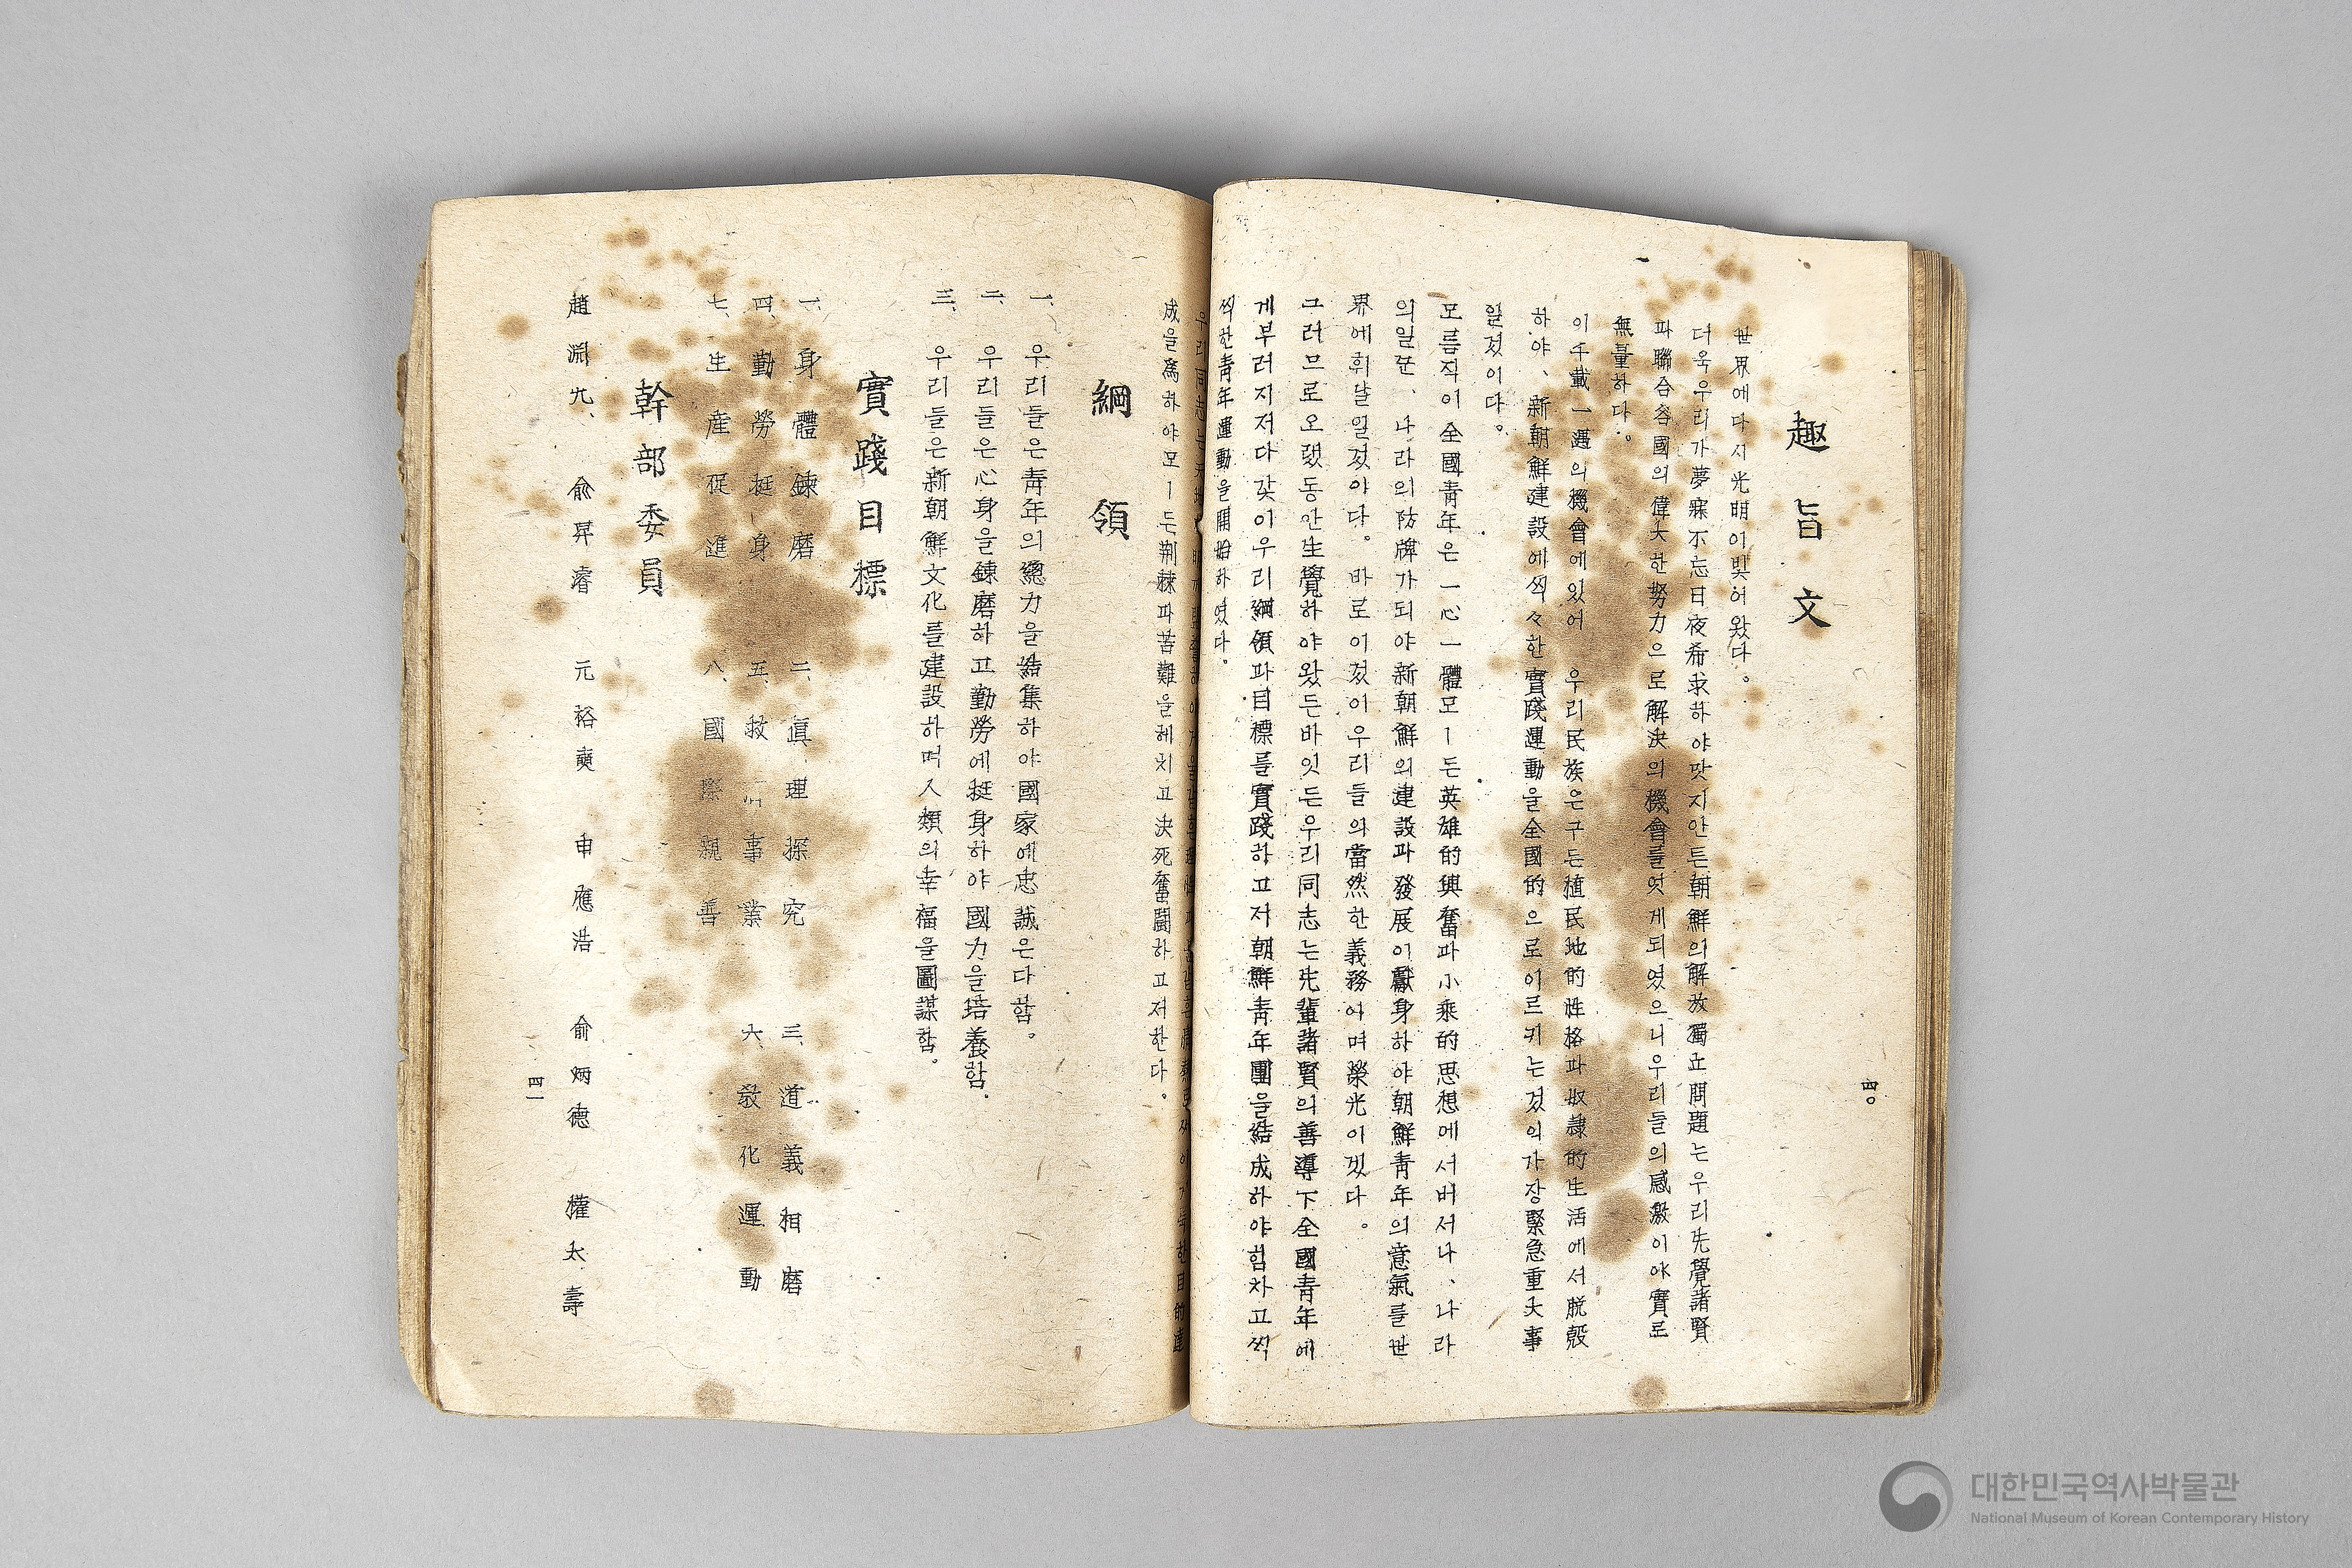 趣旨文
世界에다시光明이빛어왔다。
더욱우리가夢寐不忘日夜希求하야맛지안튼朝鮮의解放獨立問題는우리先覺諸賢
파聯合各國의偉大한努力으로解決의機會를엇게되였으니우리들의感激이야實로
無量하다。
이千載一遇의機會에있어 우리民族은구든植民地的性格과奴隷的生活에서脱殼
하야、新朝鮮建設에씩々한實踐運動을全國的으로이르키는것의가장緊急重大事
일것이다。
모름직이全國靑年은一心一體모ー든英雄的興奮과小乘的思想에서버서나、나라
의일꾼、나라의防牌가되야新朝鮮의建設과發展이獻身하야朝鮮靑年의意氣를世
界에휘날일것야다。바로이것이우리들의當然한義務이며榮光이겠다。
그러므로오랬동안生覺하야왔든바잇든우리同志는先輩諸賢의善導下全國靑年에
게부러지저다갖이우리綱領과目標를實踐하고저朝鮮靑年團을結成하야힘차고씩
씩한靑年運動을開始하였다。
成을爲하야모ー든荆棘과苦難을헤치고決死奮鬪하고저한다。
綱領
一、우리들은靑年의總力을結集하야國家에忠誠은다함。
二、우리들은心身을鍊磨하고勤勞에挺身하야國力을培養함。
三、우리들은新朝鮮文化를建設하며人類의幸福을圖謀함。
實踐目標
一、身體鍊磨 二、眞理探究 三、道義相磨
四、勤勞挺身 五、救 事業 六、敎化運動
七、生産促進 八、國際親善
幹部委員
趙淵九、 兪昇濬 元裕奭 申應浩 兪炳德 權太壽
四〇
四一
대한민국역사박물관
National Museum of Korean Contemporary History